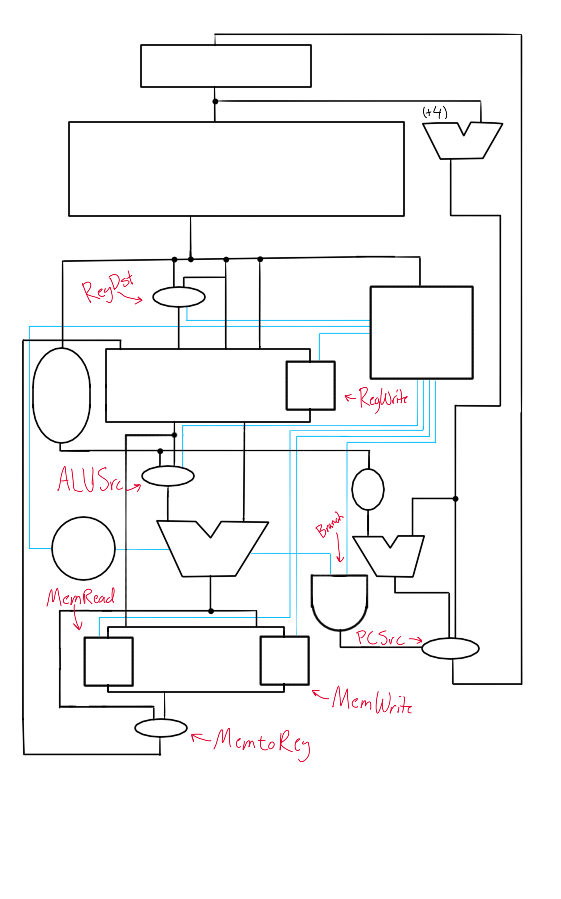 (+4)
RegDst
RegWrite
ALUSrc
Branch
MemRead
PCSrc
MemWrite
MemtoReg